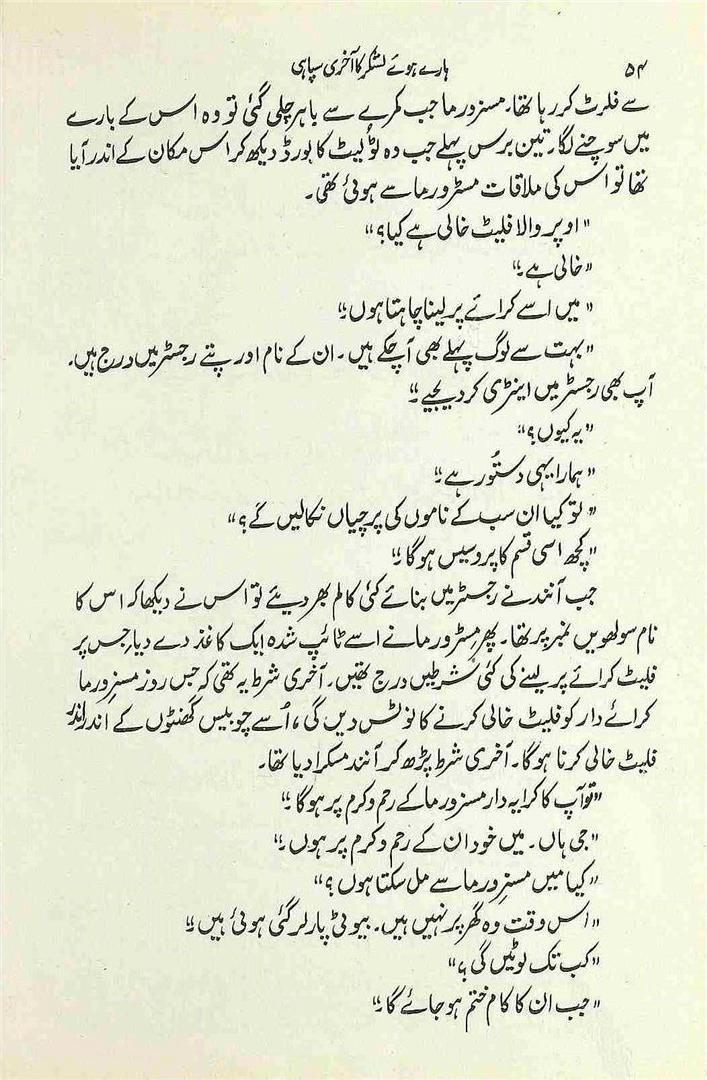 ۵۴ ہارے ہوئے لشکر کا آخری سپاہی
سے فلرٹ کر رہا تھا۔ مسز ورما جب کمرے سے باہر چلی گئی تو وہ اس کے بارے
میں سوچنے لگا۔ تین برس پہلے جب وہ ٹوُلیٹ کا بورڈ دیکھ کر اس مکان کے اندر آیا
تھا تو اس کی ملاقات مسٹر ورما سے ہوئی تھی۔
"اوپر والا فلیٹ خالی ہے کیا؟"
"خالی ہے۔"
"میں اسے کرائے پر لینا چاہتا ہوں۔"
"بہت سے لوگ پہلے بھی آ چکے ہیں۔ ان کے نام اور پتے رجسٹر میں درج ہیں۔
آپ بھی رجسٹر میں اینٹری کر دیجیے۔"
"یہ کیوں؟"
"ہمارا یہی دستُور ہے۔"
"تو کیا ان سب کے ناموں کی پرچیاں نکالیں گے؟"
"کچھ اسی قسم کا پروسیس ہوگا۔"
جب آنند نے رجسٹر میں بنائے کئی کالم بھر دیئے تو اس نے دیکھا کہ اس کا
نام سولھویں نمبر پر تھا۔ پھر مسٹر ورما نے اسے ٹائپ شدہ ایک کاغذ دے دیا، جس پر
فلیٹ کرائے پر لینے کی کئی شرطیں درج تھیں۔ آخری شرط یہ تھی کہ جس روز مسز ورما
کرائے دار کو فلیٹ خالی کرنے کا نوٹس دیں گی، اُسے چوبیس گھنٹوں کے اندر اندر
فلیٹ خالی کرنا ہوگا۔ آخری شرط پڑھ کر آنند مسکرا دیا تھا۔
"تو آپ کا کرایہ دار مسز ورما کے رحم و کرم پر ہوگا۔"
"جی ہاں۔ میں خود ان کے رحم و کرم پر ہوں۔"
"کیا میں مسز ورما سے مل سکتا ہوں؟"
"اس وقت وہ گھر پر نہیں ہیں۔ بیوٹی پارلر گئی ہوئی ہیں۔"
"کب تک لوٹیں گی؟"
"جب ان کا کام ختم ہو جائے گا۔"